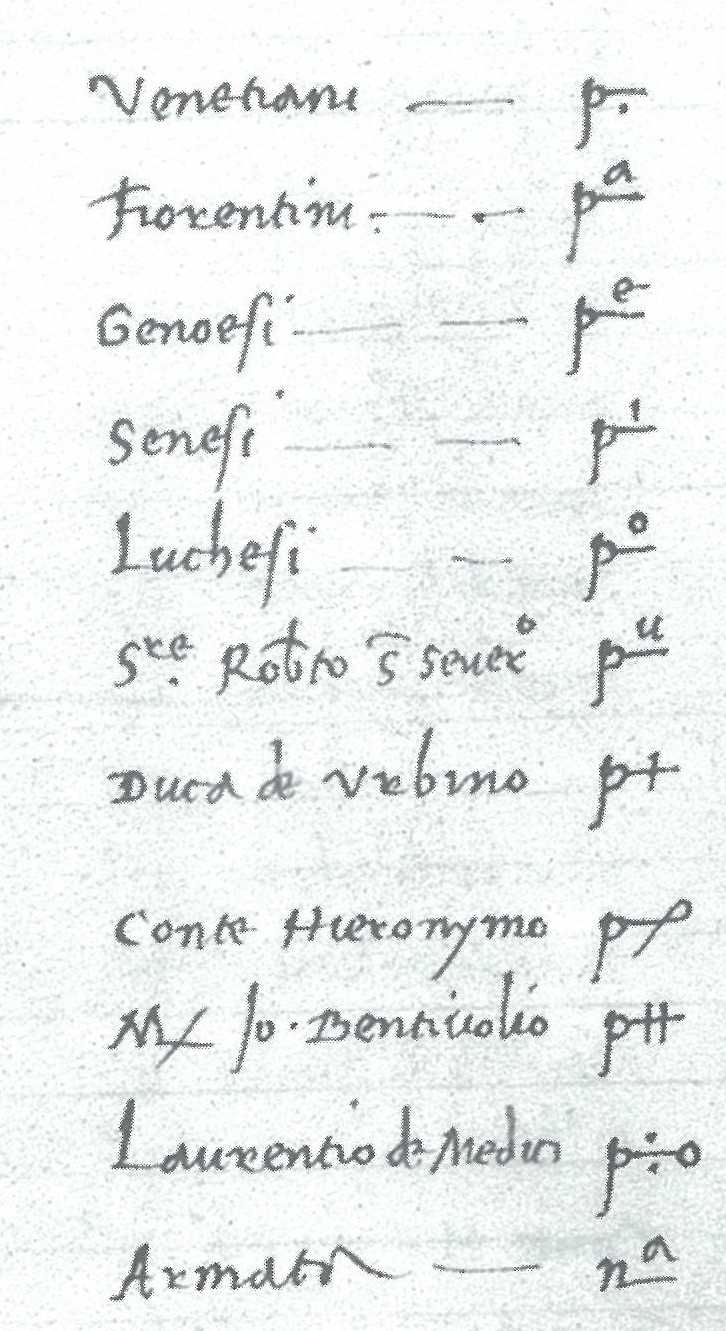 Venetiani — p.
Fiorentini. — . — pᵃ
Genoesi — — pᵉ
Senesi — — pⁱ
Luchesi — — pᵒ
Sʳᵉ. Robto S Seuerᵒ pᵘ
Duca de Urbino p+
Conte Hieronymo p
M Jo. Bentiuolio p
Laurentio de Medici p÷o
Armata — nᵃ